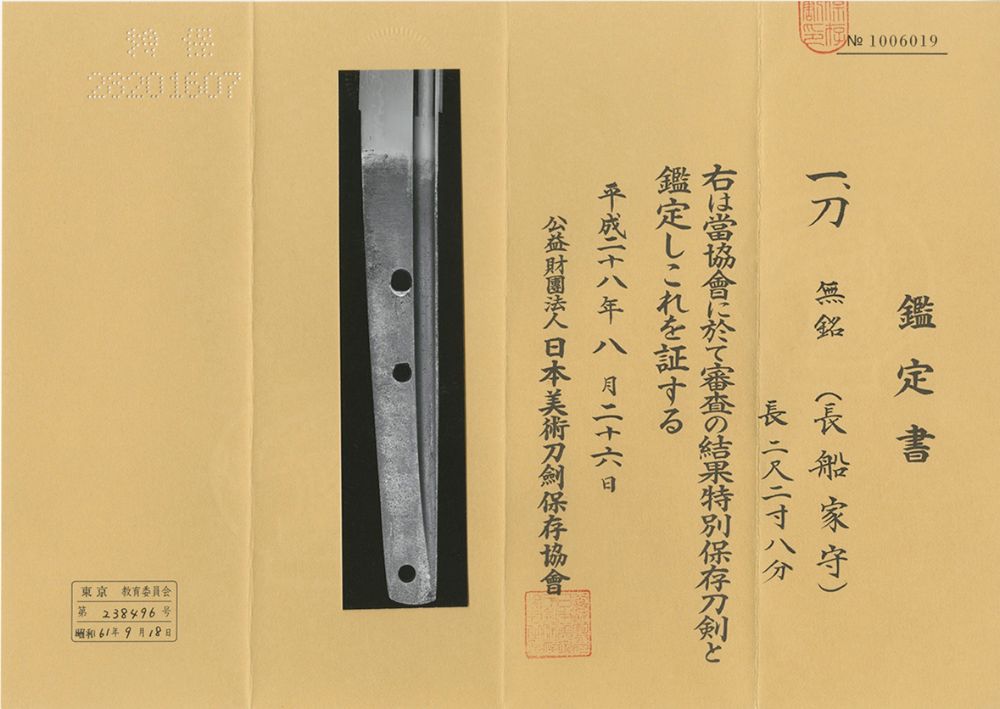 № 1006019
鑑定書
一、刀 無銘 (長船家守)
長 二尺二寸八分
右は當協會に於て審査の結果特別保存刀剣と
鑑定しこれを証する
平成二十八年八月二十六日
公益財團法人 日本美術刀劍保存協會
特保
28201607
東京 教育委員会
第 238496 号
昭和 61年 9月 18日